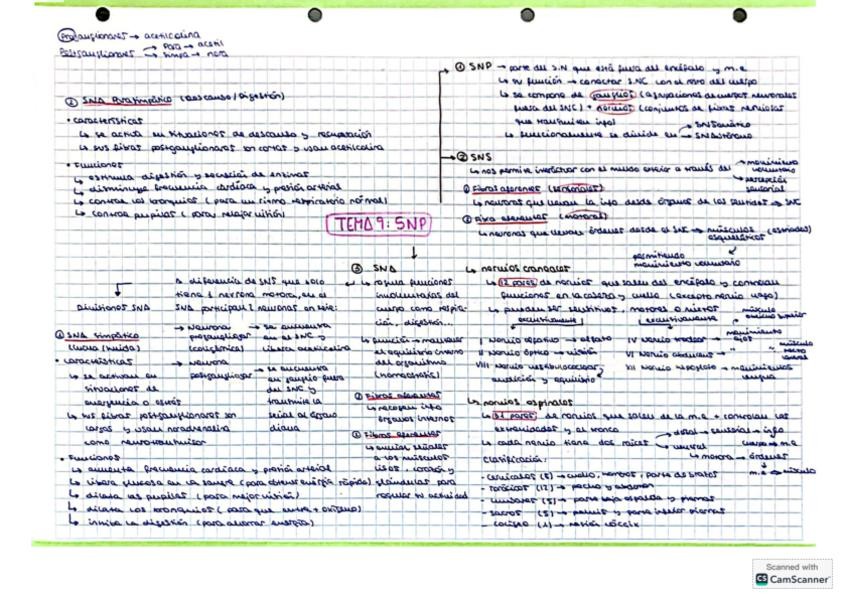 Preganglionares → acetilcolina
Postganglionares → Para → acetil
→ Simpa → nora
② SNA Parasimpático (descanso/Digestión)
• Características
↳ se activa en situaciones de descanso y recuperación
↳ sus fibras postganglionares son cortas y usan acetilcolina
• Funciones
↳ estimula digestión y secreción de enzimas
↳ disminuye frecuencia cardíaca y presión arterial
↳ contrae los bronquios (para un ritmo respiratorio normal)
↳ contrae pupilas (para relajar visión)
TEMA 9: SNP
① SNP → parte del S.N que está fuera del encéfalo y m.e
↳ su función → conectar SNC con el resto del cuerpo
↳ se compone de ganglios (agrupaciones de cuerpos neuronales
fuera del SNC) + nervios (conjuntos de fibras nerviosas
que transmiten info)
↳ funcionalmente se divide en → SNSomático
→ SNAutónomo
② SNS
↳ nos permite interactuar con el mundo exterior a través del → movimiento
voluntario
→ percepción
sensorial
① Fibras aferentes (sensoriales)
↳ neuronas que llevan la info desde órganos de los sentidos → SNC
② Fibra eferentes (motoras)
↳ neuronas que llevan órdenes desde el SNC → músculos (estriados)
esqueléticos
permitiendo
movimiento voluntario
③ SNA
↳ regula funciones
involuntarias del
cuerpo como respira-
ción, digestión...
↳ función → mantener
el equilibrio interno
del organismo
(homeostasis)
① Fibras aferentes
↳ recogen info
órganos internos
② Fibras eferentes
↳ envían señales
a los músculos
lisos, corazón y
glándulas para
regular su actividad
A diferencia de SNS que solo
tiene 1 neurona motora, en el
SNA participan 2 neuronas en serie:
→ Neurona
preganglionar
(colinérgica)
→ se encuentra
en el SNC y
libera acetilcolina
→ Neurona
postganglionar
→ se encuentra
en ganglio fuera
del SNC y
transmite la
señal al órgano
diana
Divisiones SNA
① SNA Simpático
(lucha/huida)
• Características
↳ se activa en
situaciones de
emergencia o estrés
↳ sus fibras postganglionares son
largas y usan noradrenalina
como neurotransmisor
• Funciones
↳ aumenta frecuencia cardíaca y presión arterial
↳ libera glucosa en la sangre (para obtener energía rápida)
↳ dilata las pupilas (para mejor visión)
↳ dilata los bronquios (para que entre + oxígeno)
↳ inhibe la digestión (para ahorrar energía)
↳ nervios craneales
↳ 12 pares de nervios que salen del encéfalo y controlan
funciones en la cabeza y cuello (excepto nervio vago)
↳ pueden ser sensitivos, motores o mixtos
exclusivamente
I Nervio olfativo → olfato
II Nervio óptico → visión
VIII Nervio vestibulococlear
audición y equilibrio
exclusivamente
IV Nervio troclear → movimiento
ojos
músculo
oblicuo superior
VI Nervio abducens → " " músculo
recto
lateral
XII Nervio hipogloso → movimientos
lengua
↳ nervios espinales
↳ 31 pares de nervios que salen de la m.e + controlan las
extremidades y el tronco
↳ cada nervio tiene dos raíces → dorsal → sensorial → info
cuerpo → m.e
→ ventral
↳ motora → órdenes
m.e → músculo
Clasificación:
- cervicales (8) → cuello, hombros, parte de brazos
- torácicos (12) → pecho y abdomen
- lumbares (5) → parte baja espalda y piernas
- sacros (5) → pelvis y parte inferior piernas
- coxígeo (1) → región cóccix
Scanned with
CS CamScanner